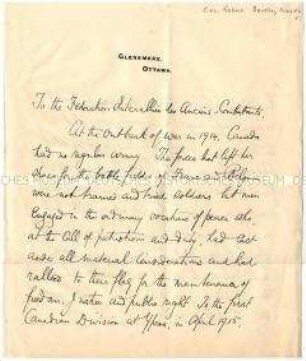 GLENSMERE,
OTTAWA.
To the Fédération Interalliée des Anciens Combattants.
At the outbreak of war in 1914, Canada
had no regular army. The forces that left her
shores for the battle fields of France and Belgium
were not trained and tried soldiers but men
engaged in the ordinary vocations of peace who
at the call of patriotism and duty, had cast
aside all material considerations and had
rallied to their flag for the maintenance of
freedom, justice and public right. To the first
Canadian Division at Ypres, in April 1915,